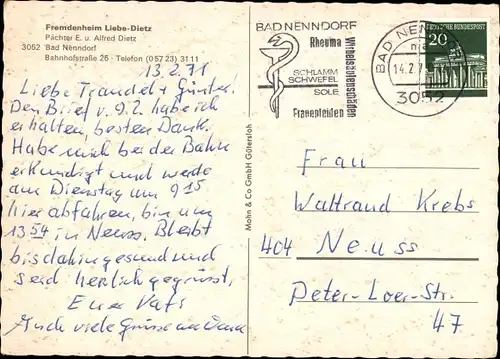 Fremdenheim Liebe-Dietz
Pächter E. u. Alfred Dietz
3052 Bad Nenndorf
Bahnhofstraße 26 · Telefon (05723) 3111
13.2.71
Liebe Traudel + Günter!
Den Brief v. 9.2. habe ich
erhalten, besten Dank.
Habe mich bei der Bahn
erkundigt und werde
am Dienstag um 9 15
hier abfahren, bin um
13 54 in Neuss. Bleibt
bis dahin gesund und
seid herlich gegrüsst,
Euer Vati
Auch viele Grüsse an
Mohn & Co GmbH Gütersloh
BAD NENNDORF
Rheuma
Wirbelsäulenschäden
SCHLAMM
SCHWEFEL
SOLE
Frauenleiden
BAD NEN
14.2.7
3052
DEUTSCHE BUNDESPOST
20
Frau
Waltraud Krebs
404 Neuss
Peter-Loer-Str.
47